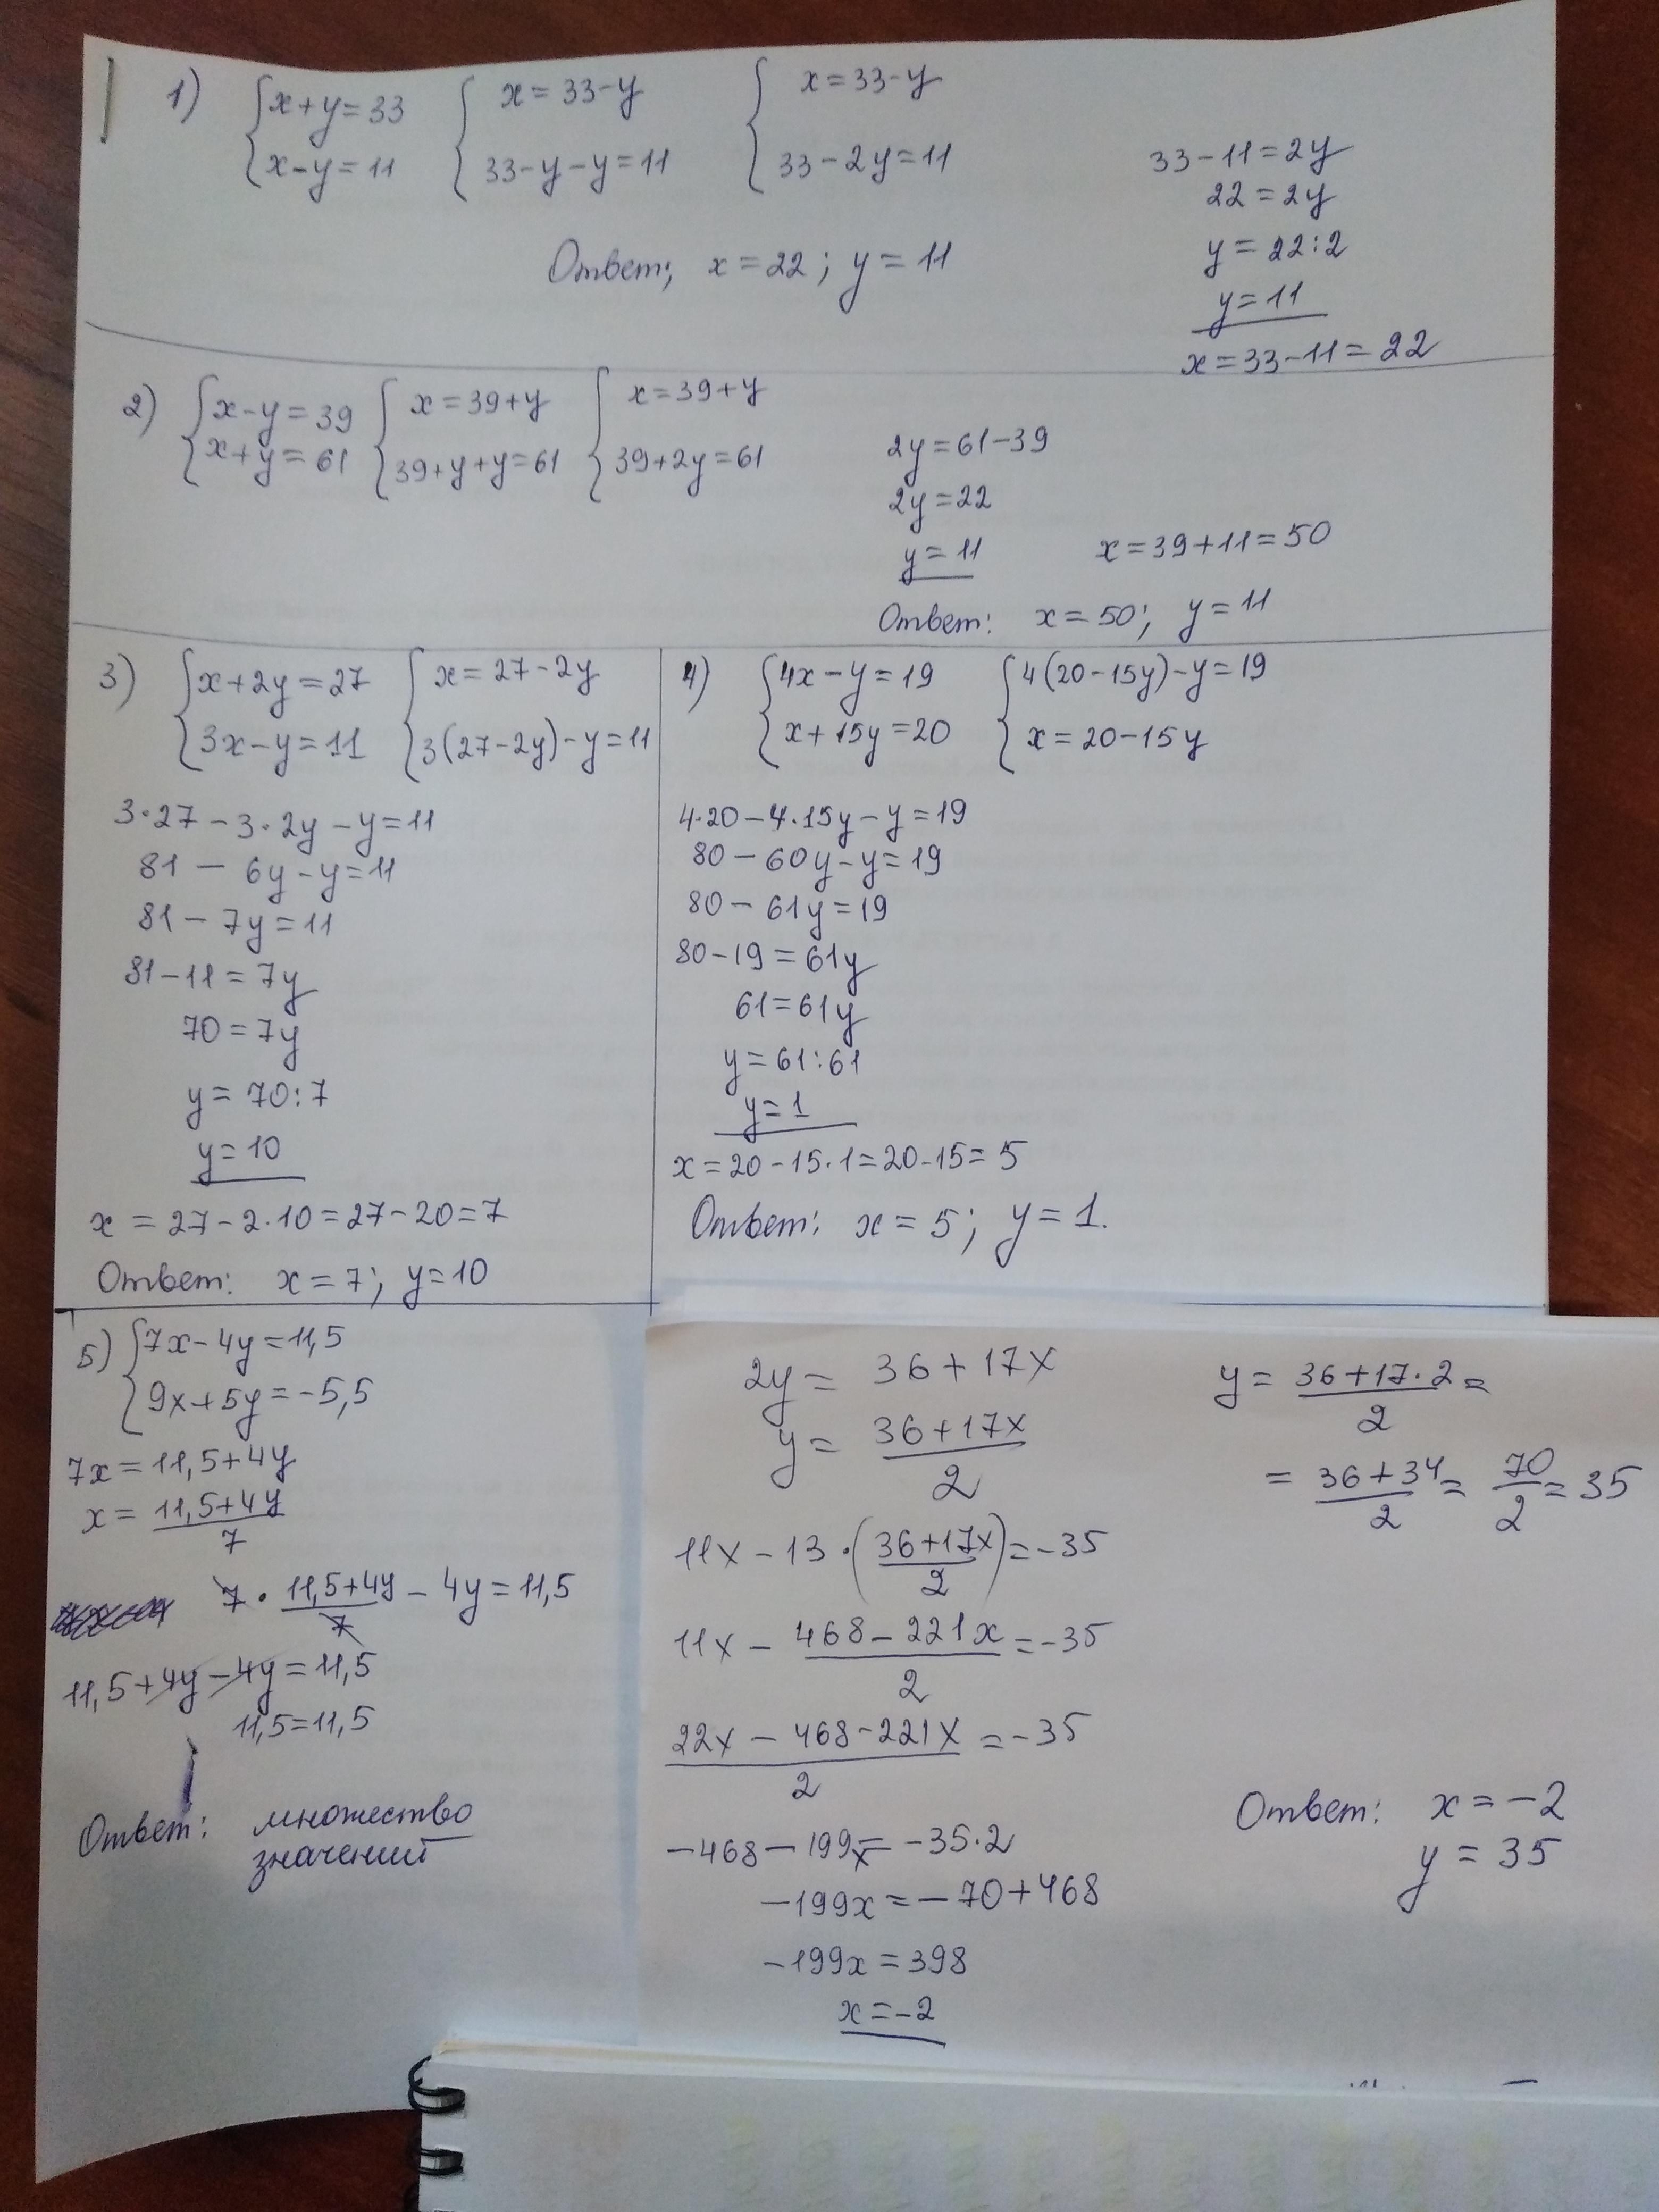 1) { x+y=33 { x=33-y { x=33-y
x-y=11 33-y-y=11 33-2y=11
33-11=2y
22=2y
y=22:2
y=11
x=33-11=22
Ответ; x=22; y=11
2) { x-y=39 { x=39+y { x=39+y
x+y=61 39+y+y=61 39+2y=61
2y=61-39
2y=22
y=11
x=39+11=50
Ответ: x=50; y=11
3) { x+2y=27 { x=27-2y
3x-y=11 3(27-2y)-y=11
3·27-3·2y-y=11
81-6y-y=11
81-7y=11
81-11=7y
70=7y
y=70:7
y=10
x=27-2·10=27-20=7
Ответ: x=7; y=10
4) { 4x-y=19 { 4(20-15y)-y=19
x+15y=20 x=20-15y
4·20-4·15y-y=19
80-60y-y=19
80-61y=19
80-19=61y
61=61y
y=61:61
y=1
x=20-15·1=20-15=5
Ответ: x=5; y=1.
5) { 7x-4y=11,5
9x+5y=-5,5
7x=11,5+4y
x=11,5+4y
7
7·11,5+4y-4y=11,5
7
11,5+4y-4y=11,5
11,5=11,5
Ответ: множество
значений
2y=36+17x
y=36+17x
2
11x-13·(36+17x)=-35
2
11x-468-221x=-35
2
22x-468-221x=-35
2
-468-199x=-35·2
-199x=-70+468
-199x=398
x=-2
y=36+17·2=
2
=36+34=70=35
2 2
Ответ: x=-2
y=35